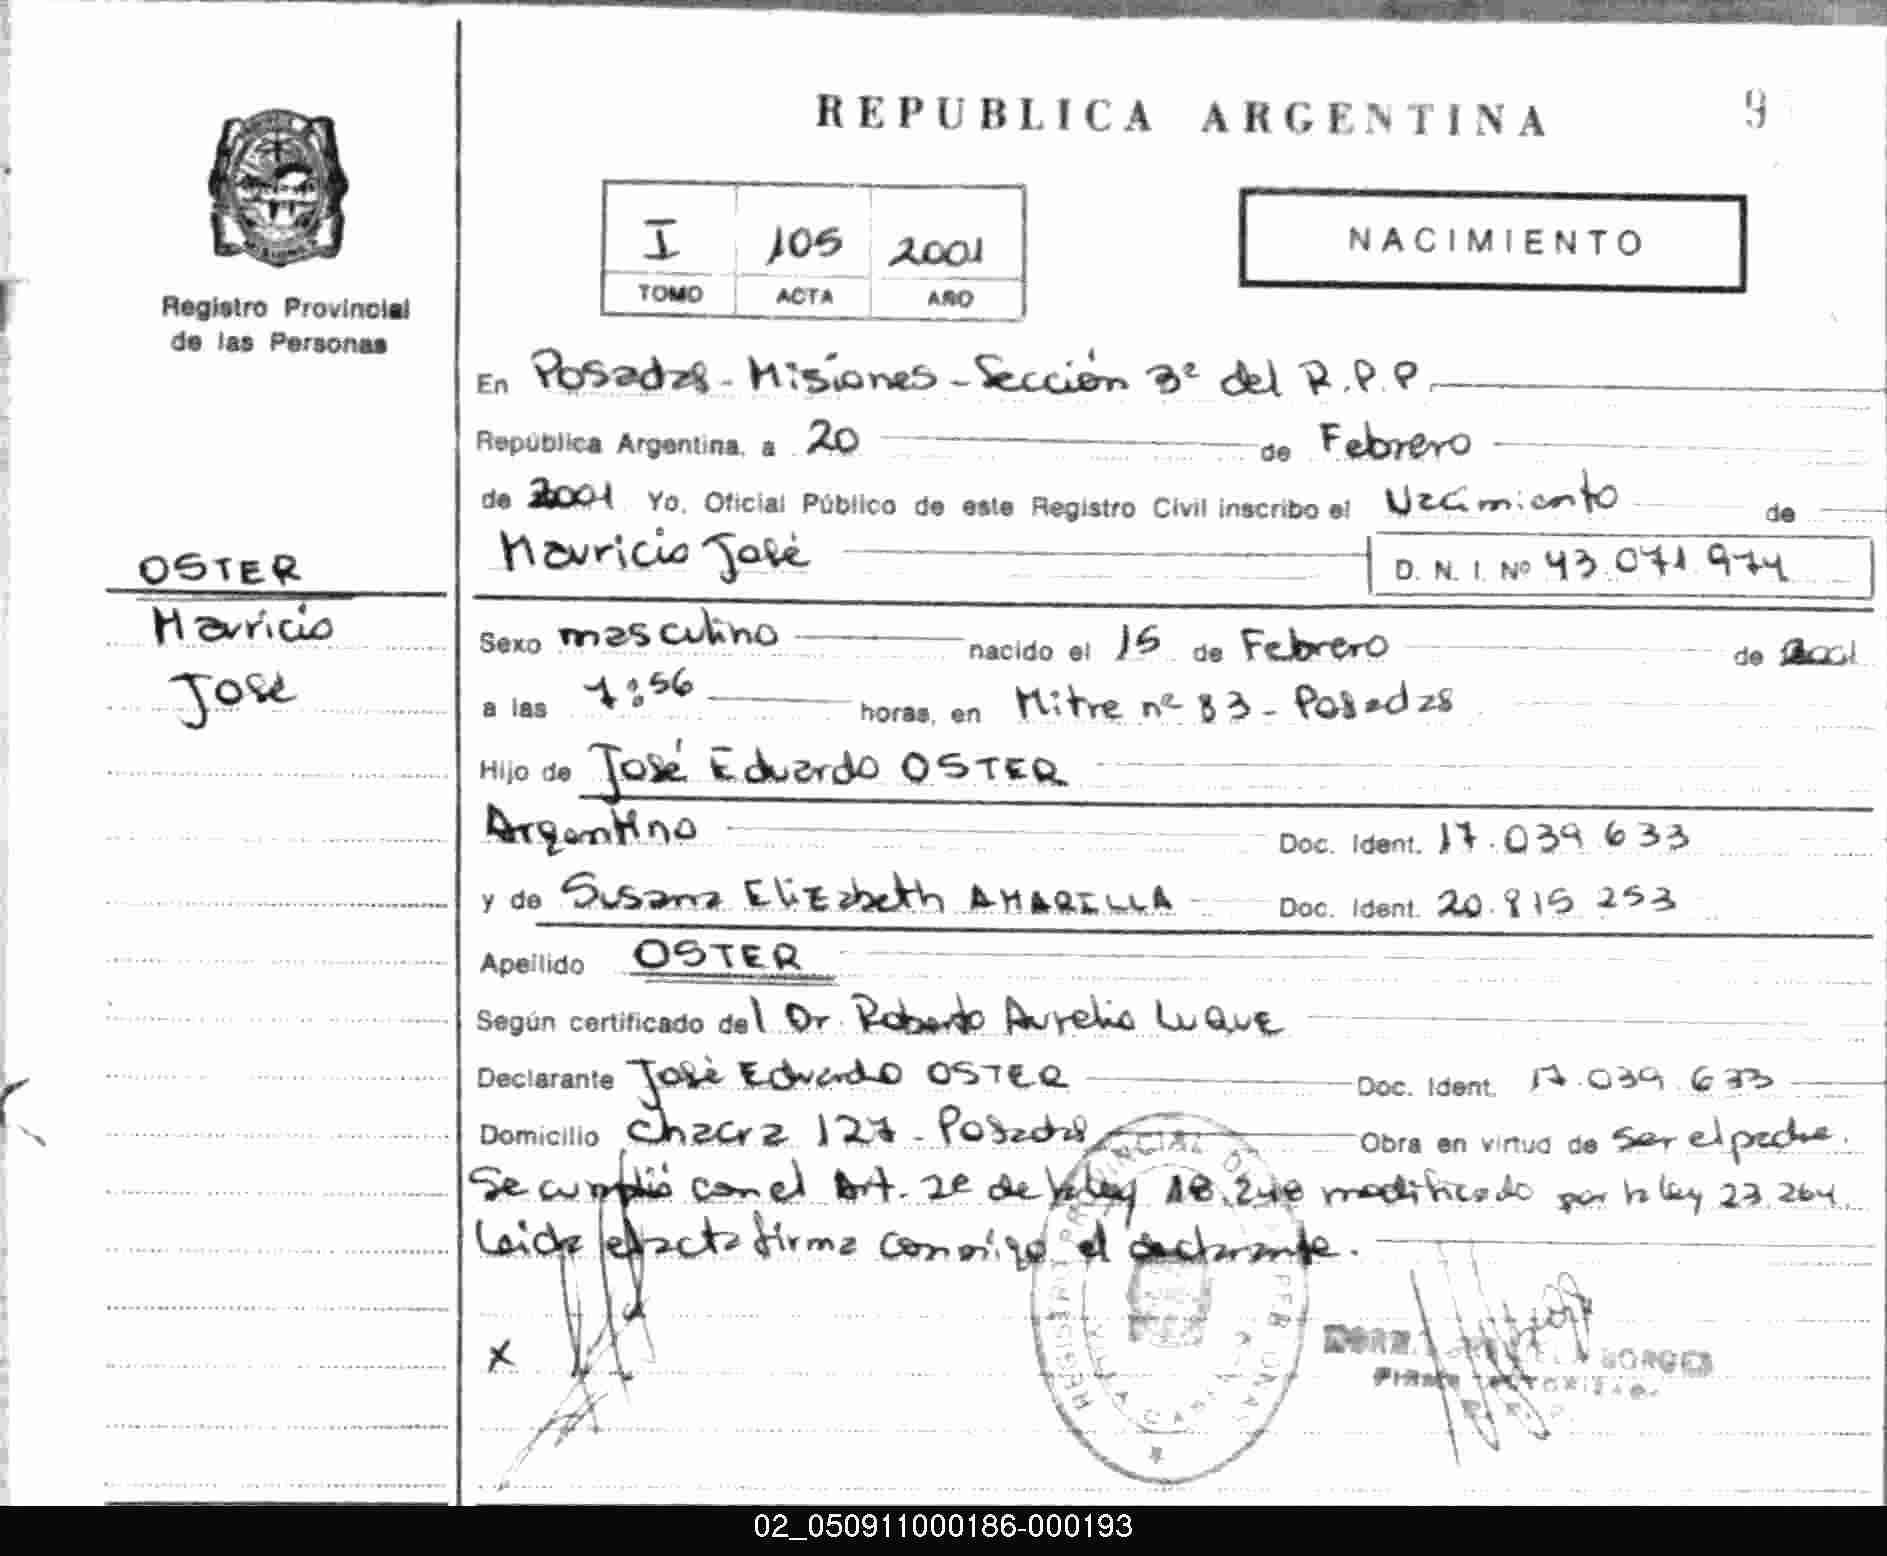 REPUBLICA ARGENTINA
9
I 105 2001
TOMO ACTA AÑO
NACIMIENTO
Registro Provincial
de las Personas
En Posadas - Misiones - Sección 3ª del R.P.P.
República Argentina, a 20 de Febrero
de 2001 Yo, Oficial Público de este Registro Civil inscribo el Nacimiento de
Mauricio José D. N. I. Nº 43.071.974
OSTER
Mauricio
José
Sexo masculino nacido el 15 de Febrero de 2001
a las 7:56 horas, en Mitre nº 83 - Posadas
Hijo de José Eduardo OSTER
Argentino Doc. Ident. 17.039.633
y de Susana Elizabeth AMARILLA Doc. Ident. 20.815.253
Apellido OSTER
Según certificado del Dr. Roberto Aurelio Luque
Declarante José Eduardo OSTER Doc. Ident. 17.039.633
Domicilio Chacra 127 - Posadas Obra en virtud de ser el padre.
Se cumplió con el Art. 2º de la ley 18.248 modificado por la ley 23.264.
Leida el acta firma conmigo el declarante.
X
BORGES
02_050911000186-000193